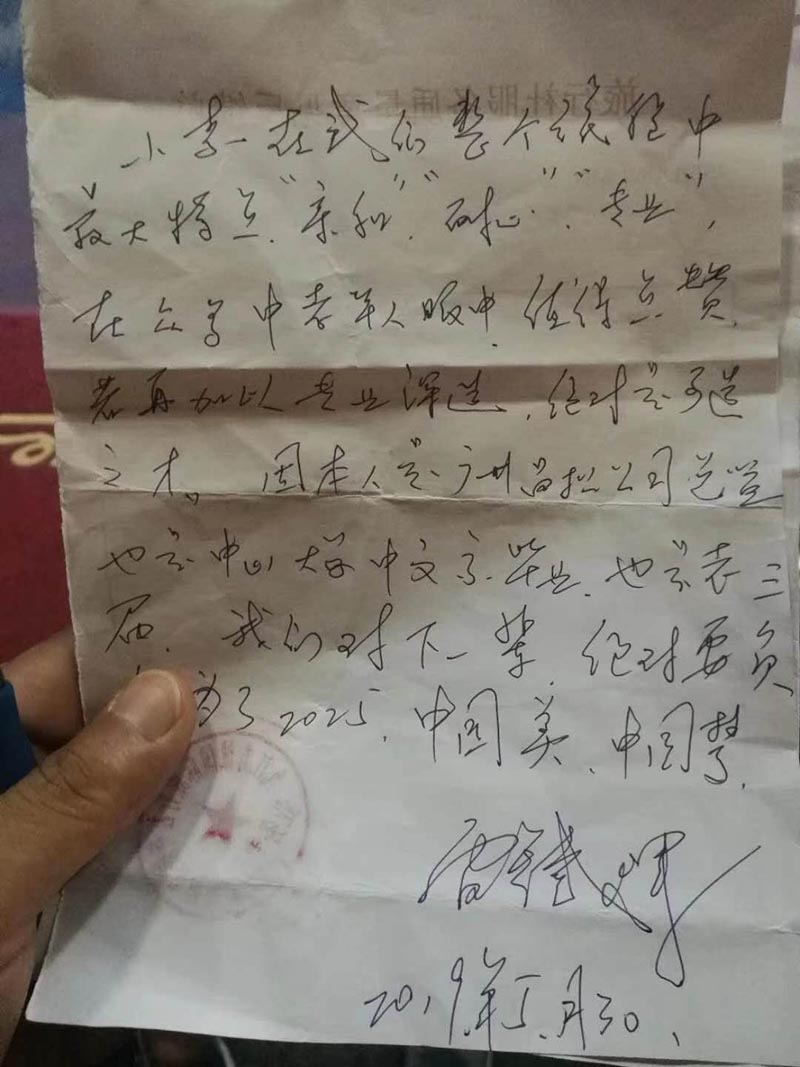 小李在我们整个旅程中
最大特点“亲和”、“耐心”、“专业”,
在众多中老年人眼中,值得点赞,
若再加以专业深造,绝对是可造
之才。因本人是广州公司
也是中山大学中文系毕业,也是老三
届,我们对下一辈,绝对要负
为了2025,中国美,中国梦,
2019年5月30、